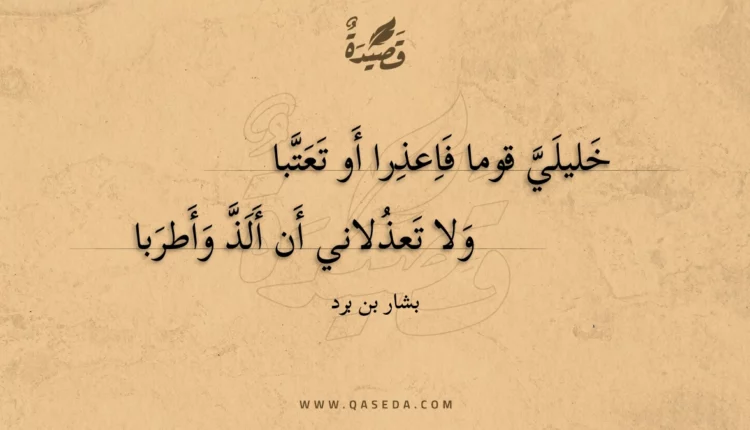 قَصِيدَةٌ
خَليلَيَّ قوما فَاِعذِرا أَو تَعَتَّبا
وَلا تَعذُلاني أَن أَلَذَّ وَأَطرَبا
بشار بن برد
WWW.QASEDA.COM